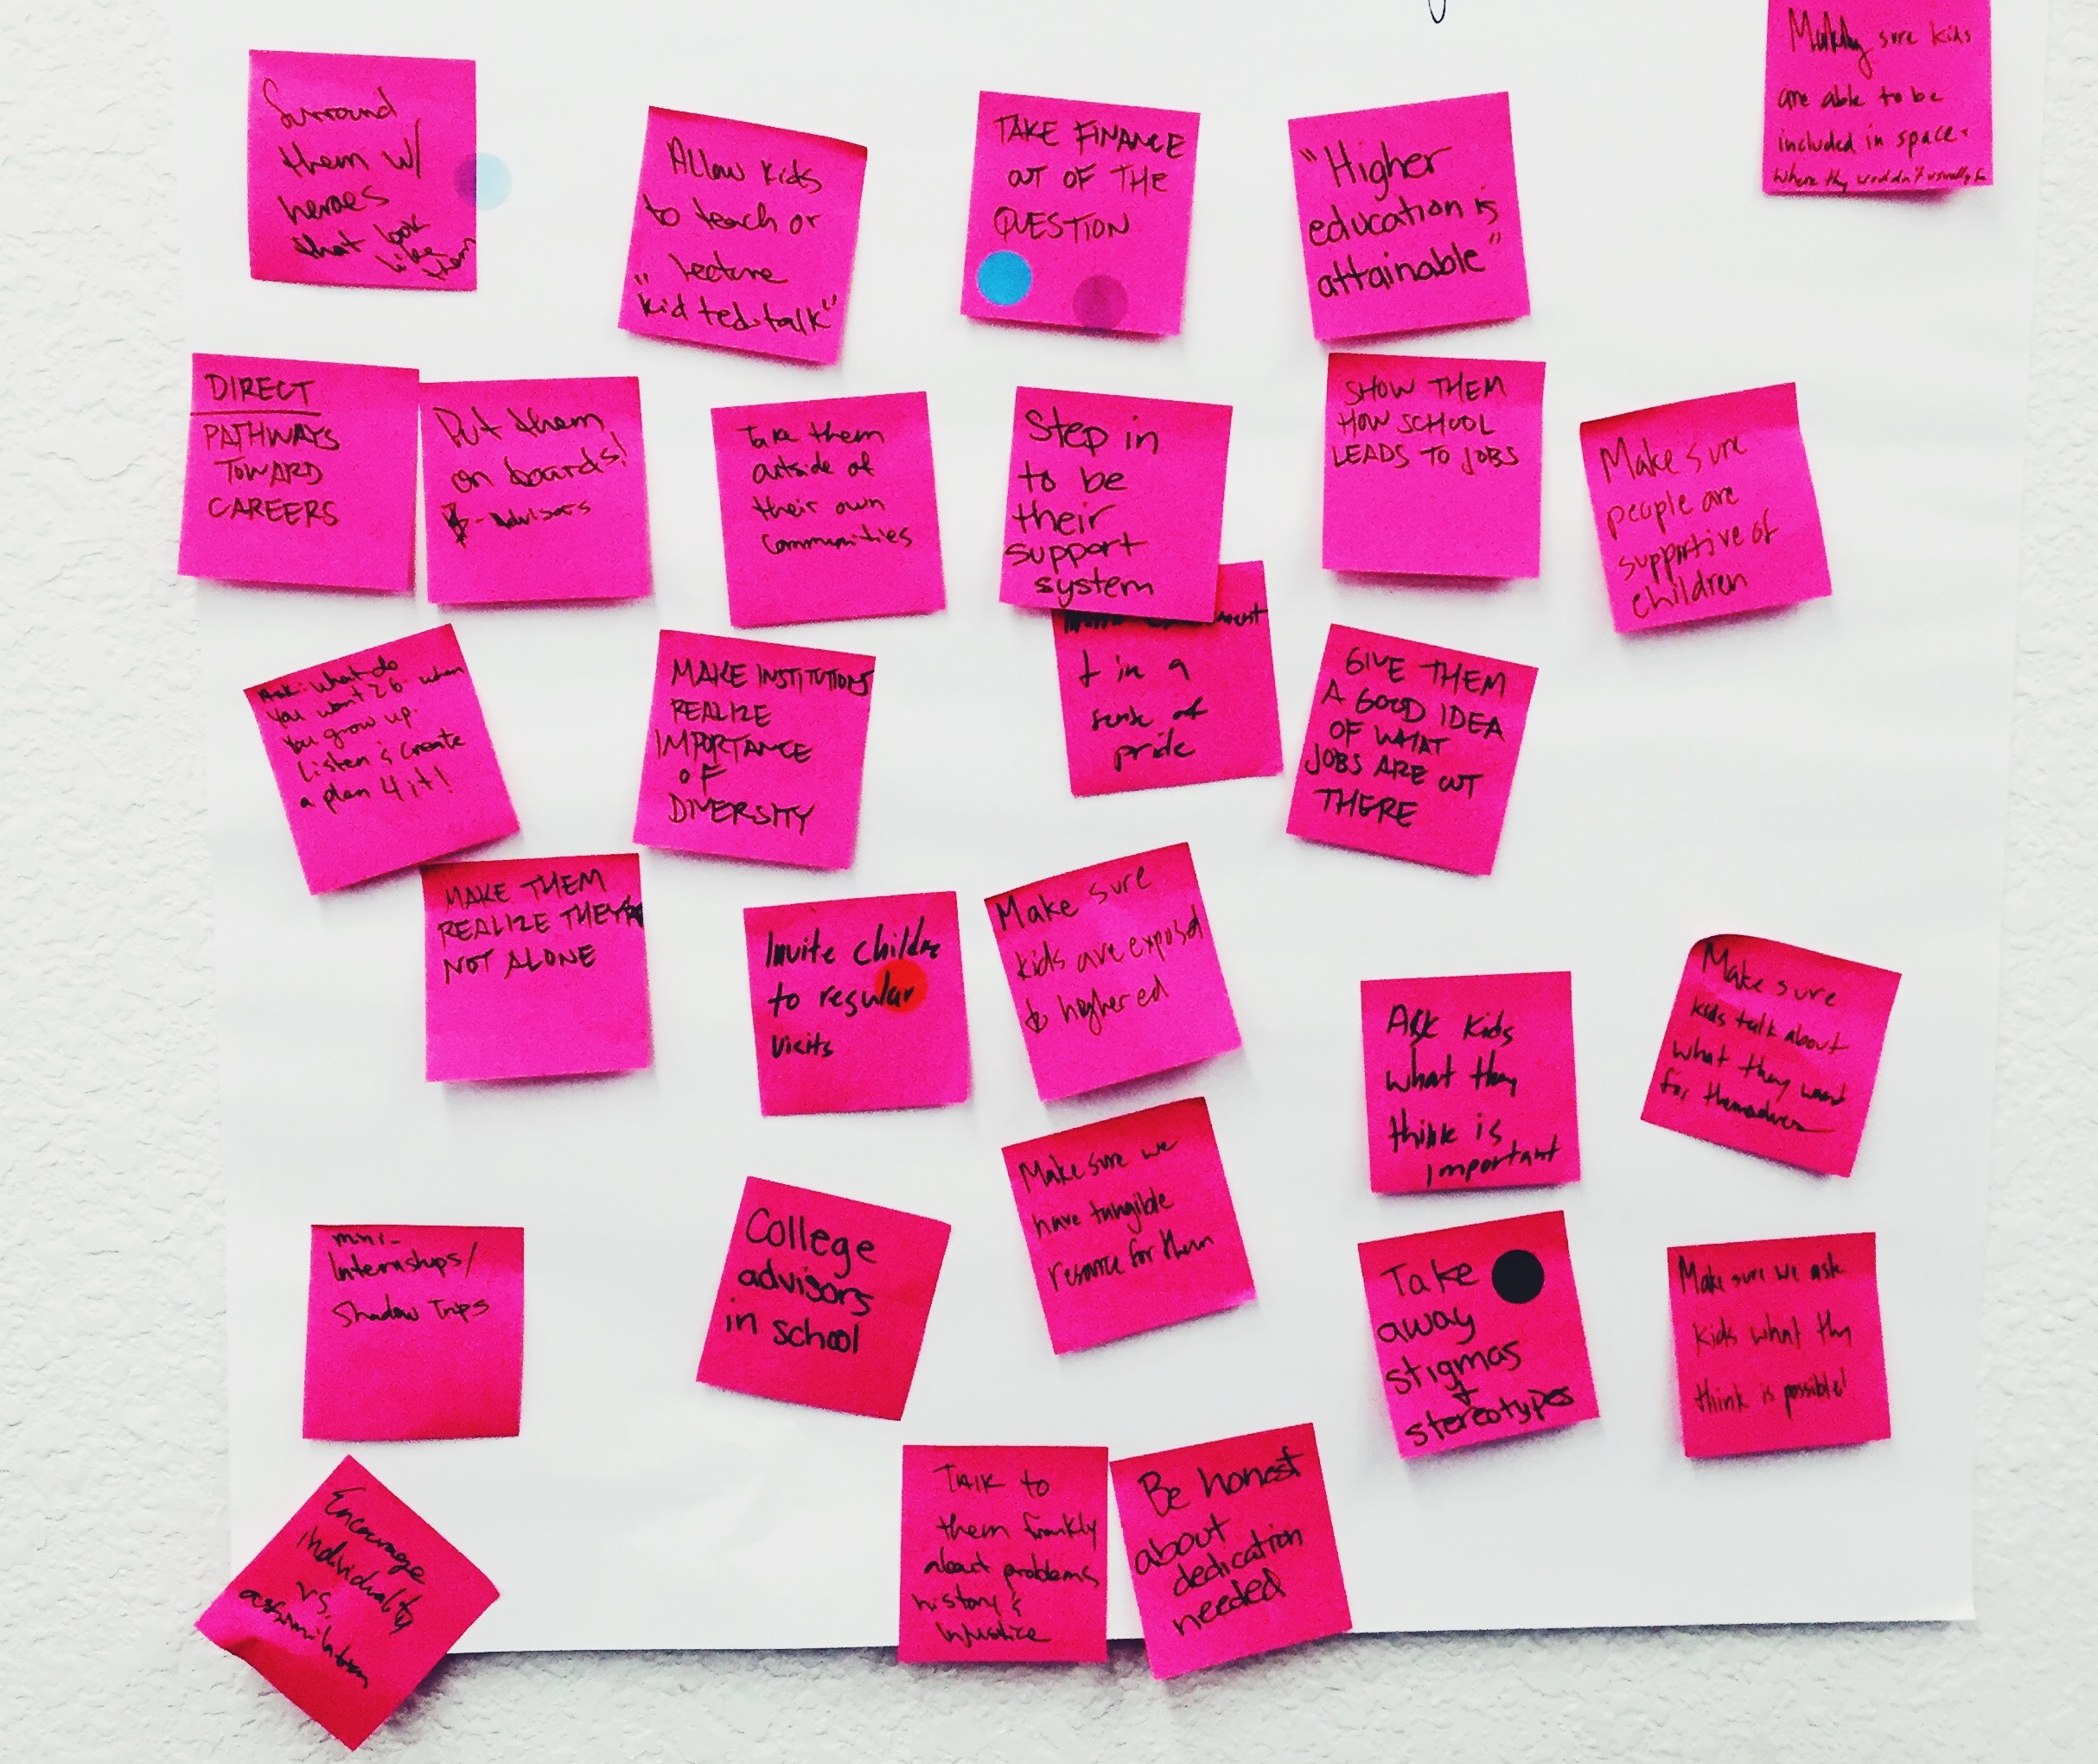 Surround
them w/
heroes
that look
like them
Allow kids
to teach or
lecture
"kid ted talk"
TAKE FINANCE
OUT OF THE
QUESTION
"Higher
education is
attainable"
Making sure kids
are able to be
included in spaces
where they wouldn't usually be
DIRECT
PATHWAYS
TOWARD
CAREERS
Put them
on boards!
- Advisors
Take them
outside of
their own
communities
Step in
to be
their
support
system
SHOW THEM
HOW SCHOOL
LEADS TO JOBS
Make sure
people are
supportive of
children
Ask: what do
you want 2 b when
you grow up.
Listen & create
a plan 4 it!
MAKE INSTITUTIONS
REALIZE
IMPORTANCE
OF
DIVERSITY
in a
sense of
pride
GIVE THEM
A GOOD IDEA
OF WHAT
JOBS ARE OUT
THERE
MAKE THEM
REALIZE THEY'RE
NOT ALONE
Invite children
to regular
visits
Make sure
kids are exposed
to higher ed
Ask kids
what they
think is
important
Make sure
kids talk about
what they want
for themselves
mini-
Internships/
Shadow Trips
College
advisors
in school
Make sure we
have tangible
resource for them
Take
away
stigmas
+
stereotypes
Make sure we ask
kids what they
think is possible!
Encourage
individuality
vs.
assimilation
Talk to
them frankly
about problems
history &
injustice
Be honest
about
dedication
needed